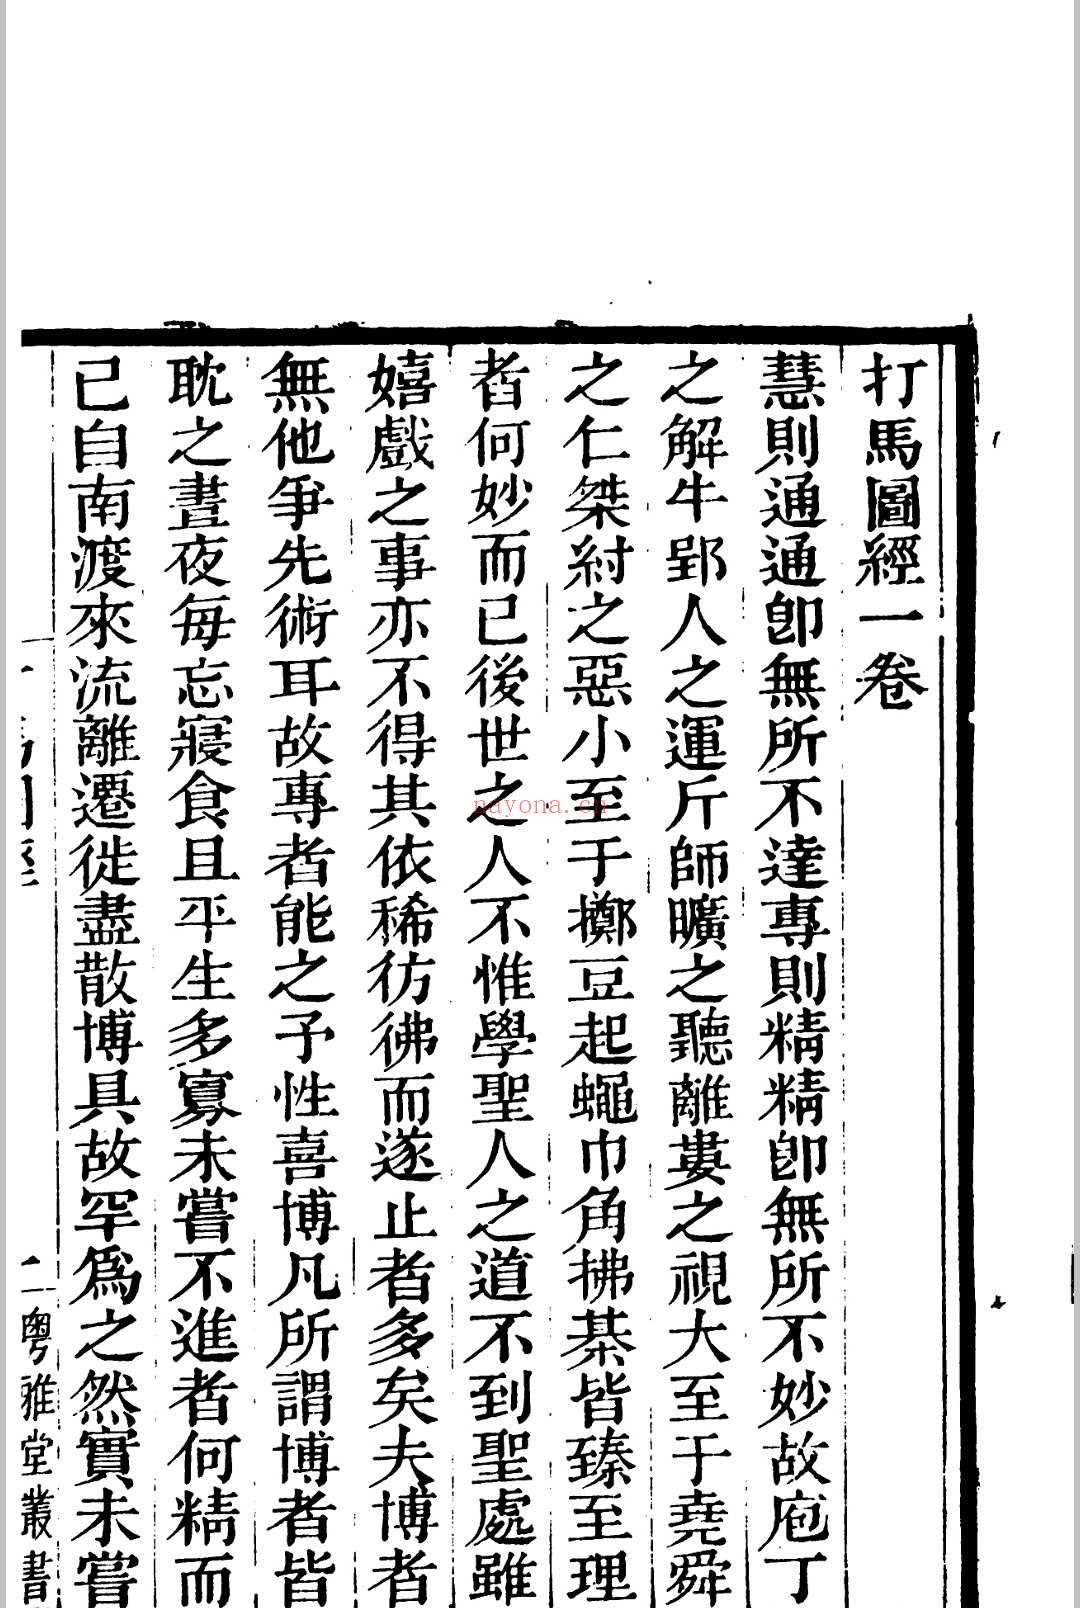 打馬圖經一卷
慧則通通卽無所不達專則精精卽無所不妙故庖丁
之解牛郢人之運斤師曠之聽離婁之視大至于堯舜
之仁桀紂之惡小至于擲豆起蠅巾角拂棊皆臻至理
者何妙而已後世之人不惟學聖人之道不到聖處雖
嬉戲之事亦不得其依稀彷彿而遂止者多矣夫博者
無他爭先術耳故專者能之予性喜博凡所謂博者皆
耽之晝夜每忘寢食且平生多寡未嘗不進者何精而
已自南渡來流離遷徙盡散博具故罕爲之然實未嘗
粵雅堂叢書
nayona.cn